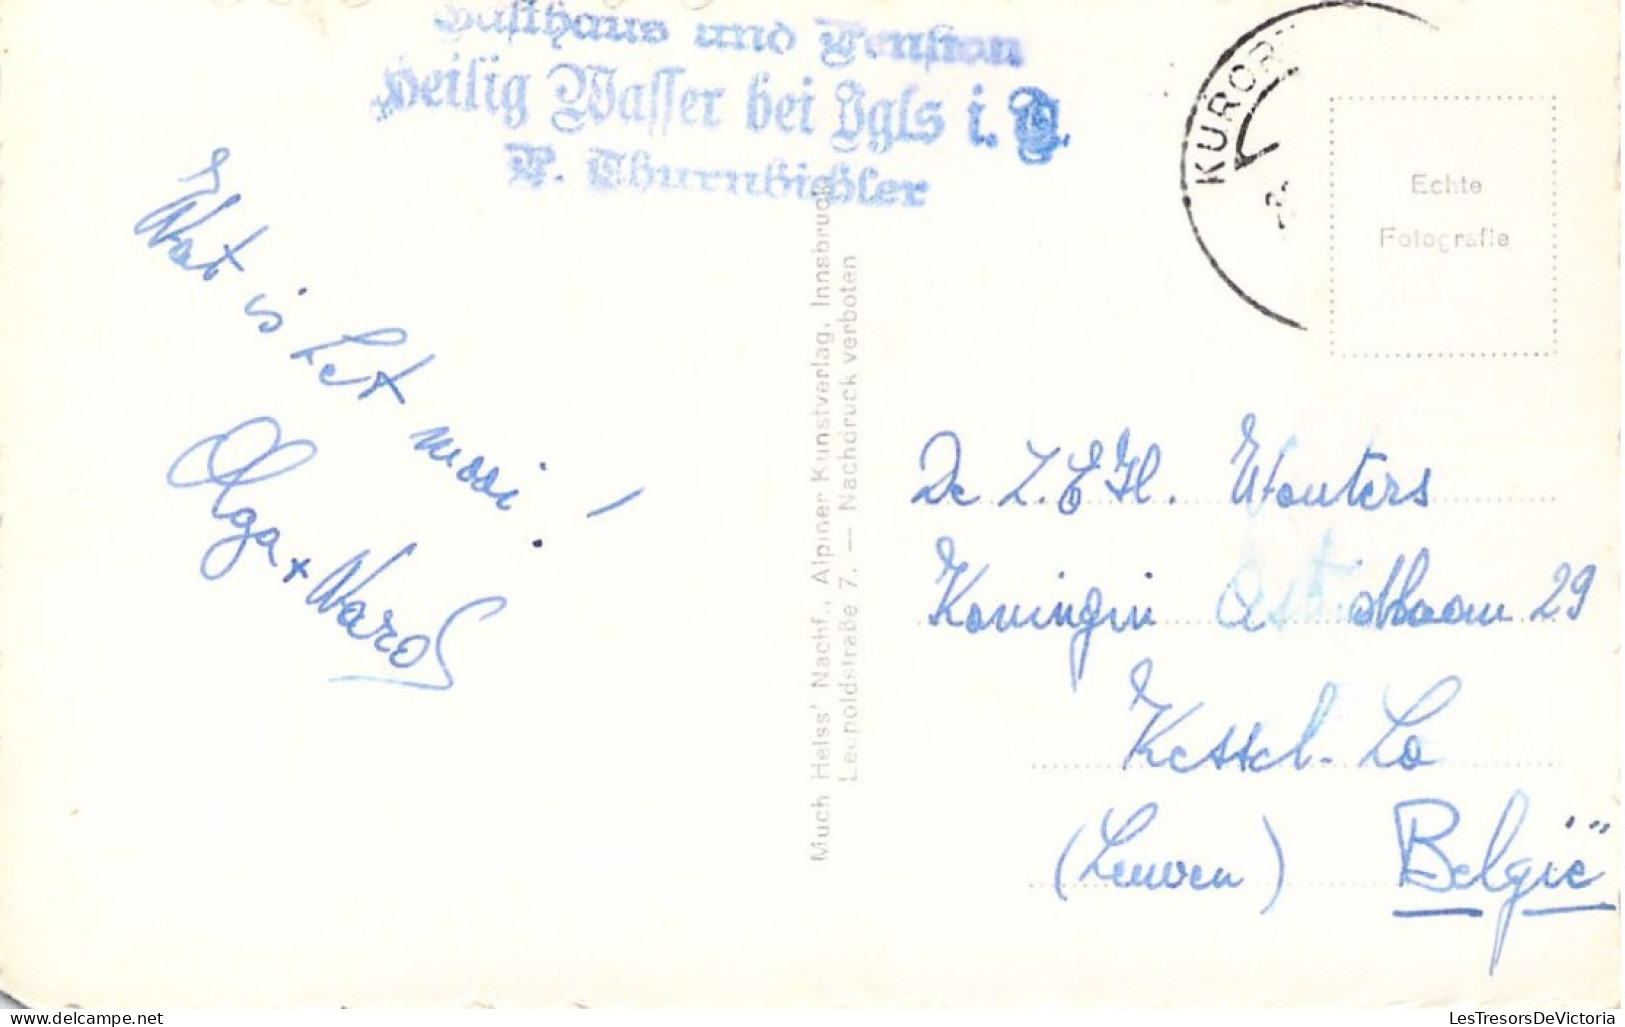 Gasthaus und Pension
Heilig Wasser bei Igls i. T.
Thurnbichler
KURORT
Echte
Fotografie
Wat is het mooi!
Olga + Ward
Much Heiss' Nachf., Alpiner Kunstverlag, Innsbruck
Leopoldstraße 7. — Nachdruck verboten
De Z.E.H. Wouters
Koningin Astridlaan 29
Kessel-Lo
(Leuven) België
www.delcampe.net
LesTresorsDeVictoria